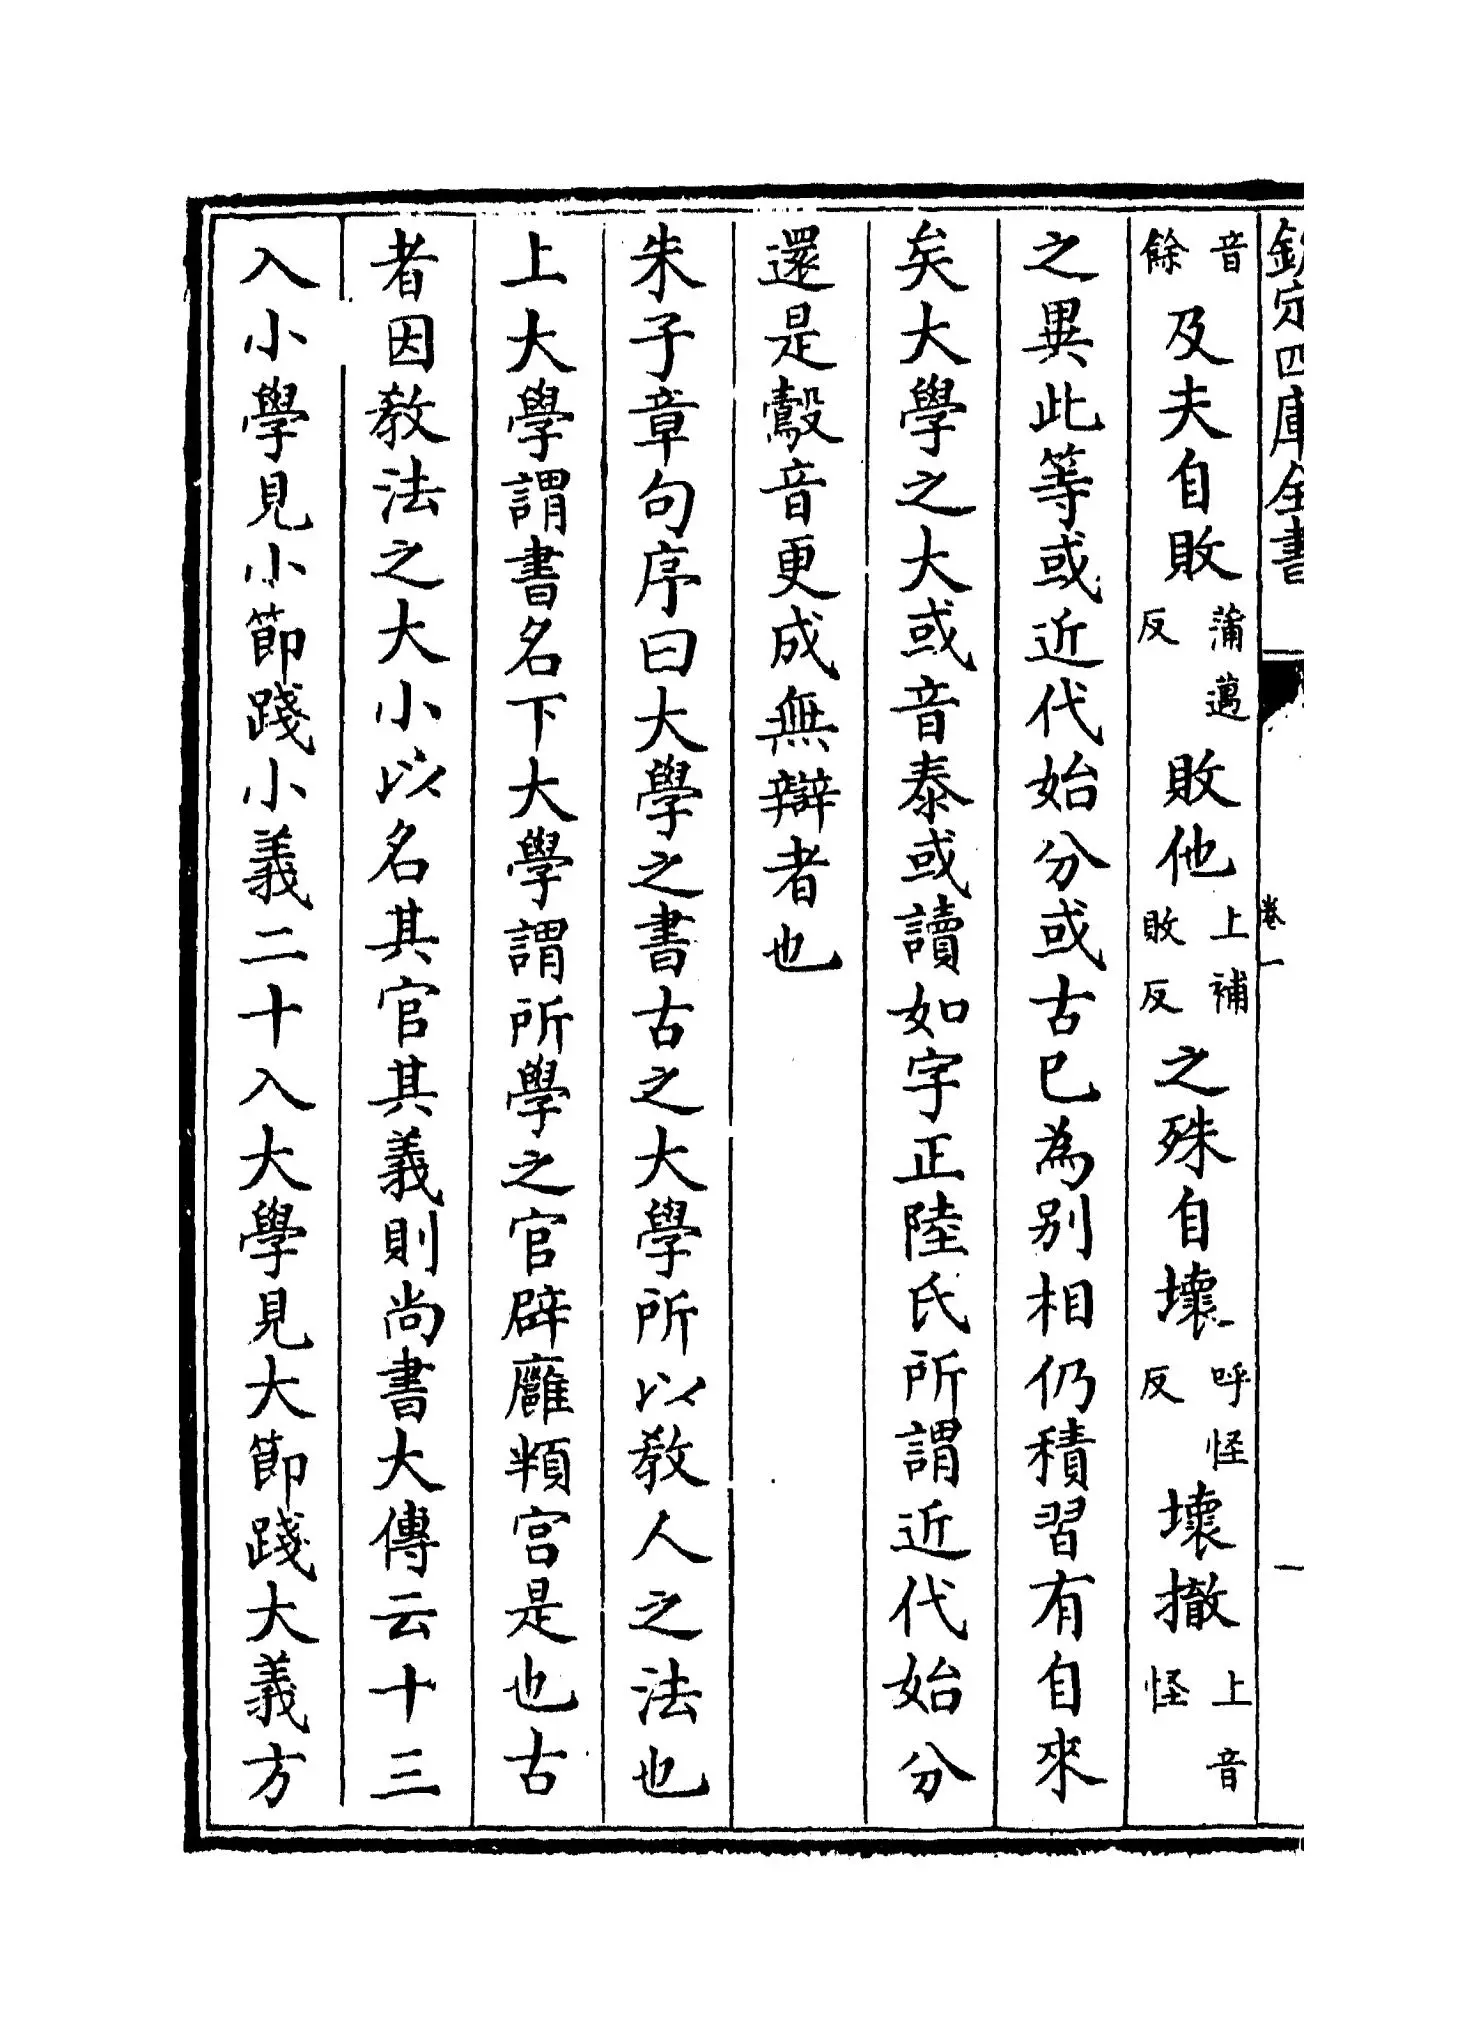 欽定四庫全書 卷一 一
音餘及夫自敗蒲邁反敗他上補敗反之殊自壞呼怪反壞撤上音怪
之異此等或近代始分或古已為別相仍積習有自來
矣大學之大或音泰或讀如字正陸氏所謂近代始分
還是鷇音更成無辯者也
朱子章句序曰大學之書古之大學所以教人之法也
上大學謂書名下大學謂所學之官辟廱頖宫是也古
者因教法之大小以名其官其義則尚書大傳云十三
入小學見小節踐小義二十入大學見大節踐大義方